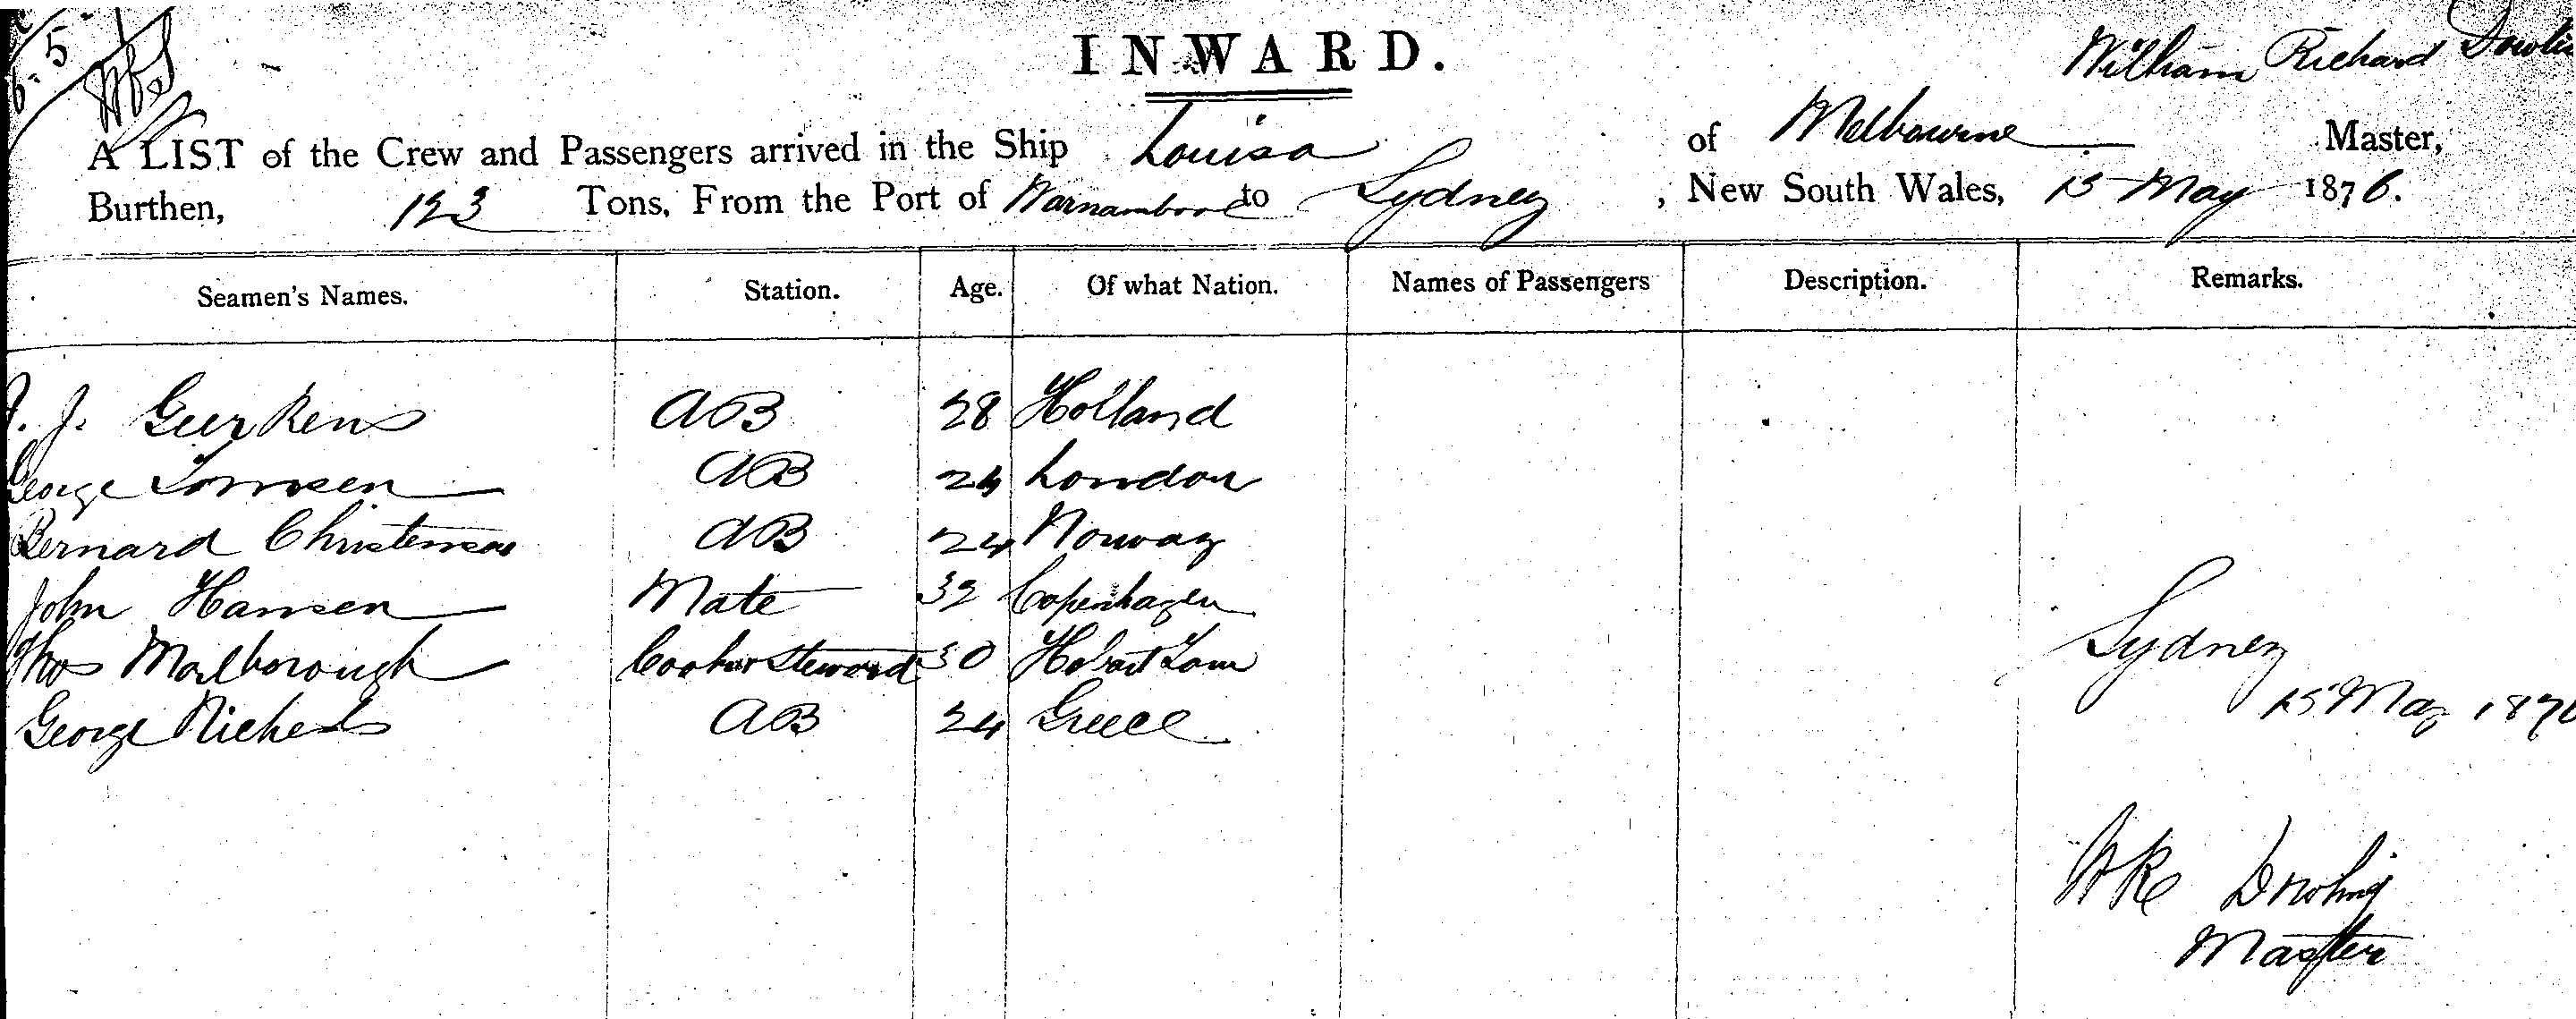 INWARD.
William Richard
A LIST of the Crew and Passengers arrived in the Ship Louisa of Melbourne Master,
Burthen, 123 Tons, From the Port of Warnambool to Sydney, New South Wales, 15 May 1876.
Seamen's Names. Station. Age. Of what Nation. Names of Passengers Description. Remarks.
J. Geerkens AB 28 Holland
George AB 24 London
Bernard Christensen AB 24 Norway
John Hansen Mate 32 Copenhagen
Thos Marlborough Cook & Steward 30 Hobart Town
George AB 24 Greece
Sydney
15 May 187
WR Dowling
Master